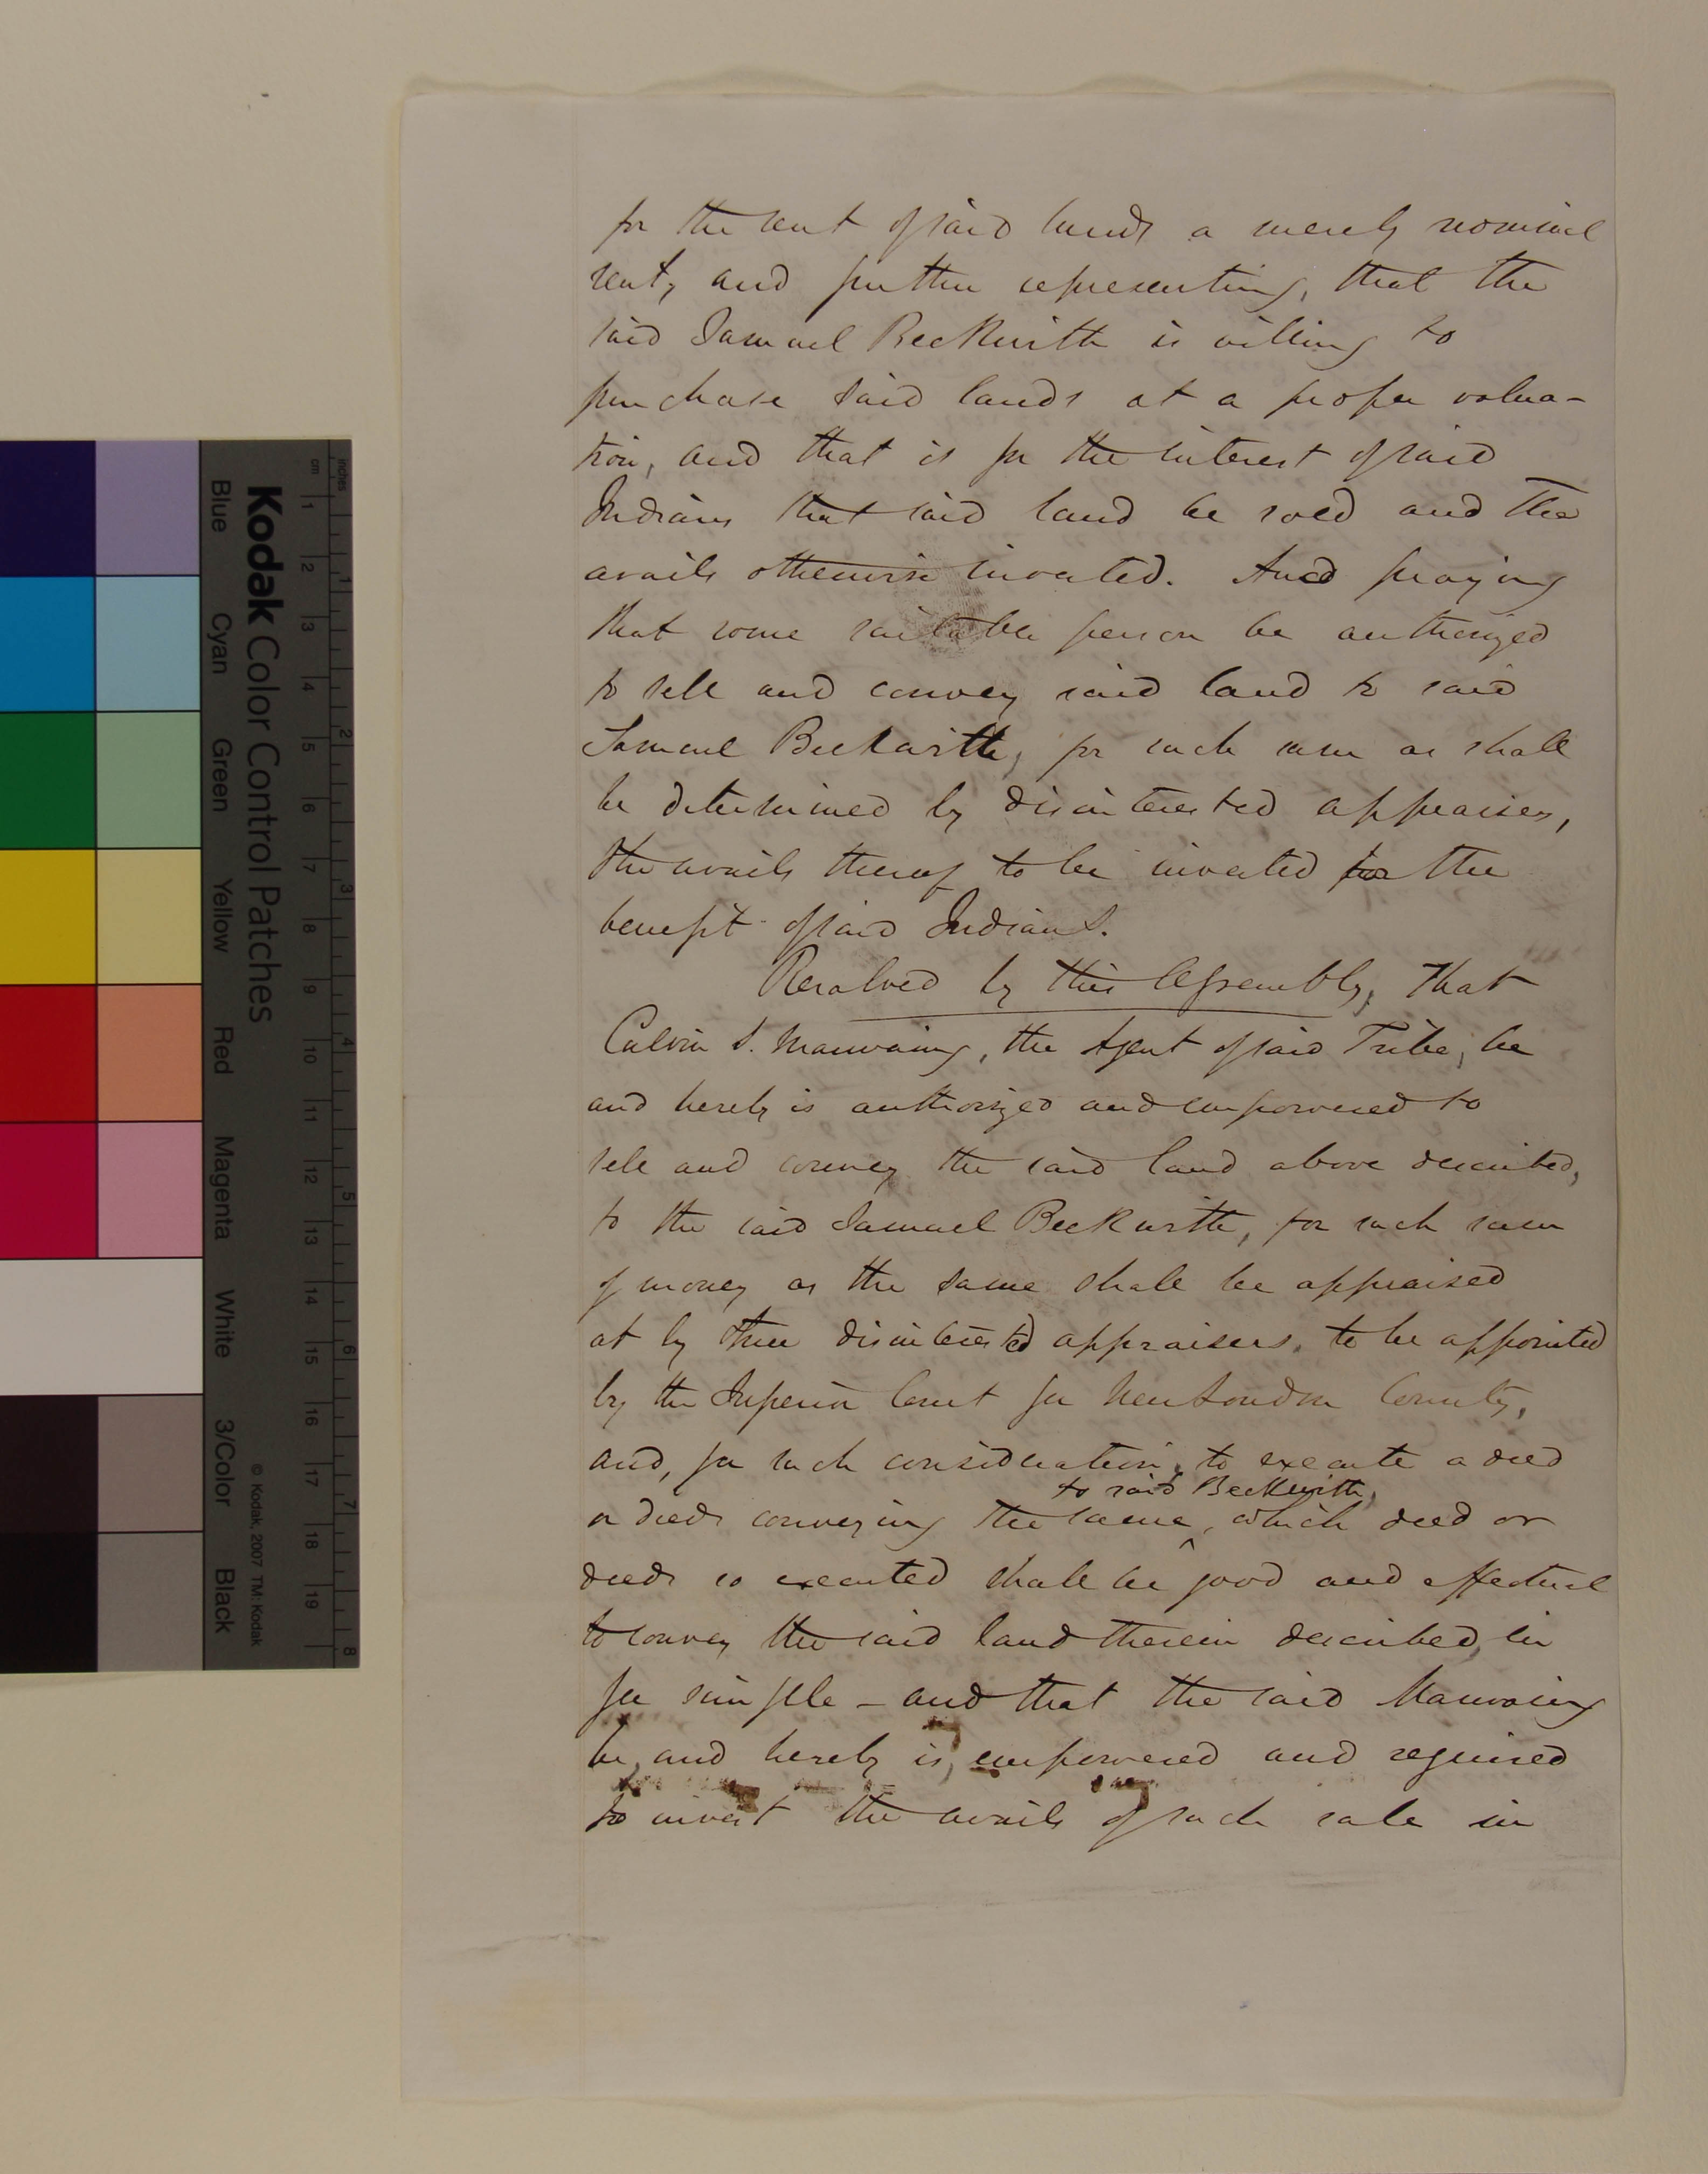 for the rent of said lands a merely nominal
rent, and further representing, that the
said Samuel Beckwith is willing to
purchase said lands at a proper valua-
tion, and that is for the interest of said
Indians that said land be sold and the
avails otherwise invested. And praying
that some suitable person be authorized
to sell and convey said land to said
Samuel Beckwith, for such sum as shall
be determined by disinterested appraisers,
the avails thereof to be invested for the
benefit of said Indians.
Resolved by this Assembly, That
Calvin S. Manwaring, the Agent of said Tribe, be
and hereby is authorized and empowered to
sell and convey the said land above described,
to the said Samuel Beckwith, for such sum
of money as the same shall be appraised
at by three disinterested appraisers, to be appointed
by the Superior Court for New London County,
and, for such consideration, to execute a deed
to said Beckwith,
or deeds conveying the same, which deed or
deeds so executed shall be good and effectual
to convey the said land therein described, in
fee simple – and that the said Manwaring
be, and hereby is, empowered and required
to invest the avails of such sale in
Kodak Color Control Patches
Blue Cyan Green Yellow Red Magenta White 3/Color Black
© Kodak, 2007 TM: Kodak
inches 1 2 3 4 5 6 7 8
cm 1 2 3 4 5 6 7 8 9 10 11 12 13 14 15 16 17 18 19